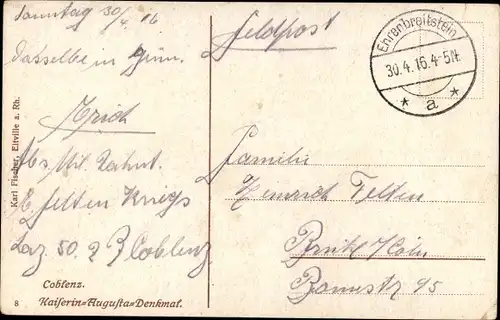 Sonntag 30/4 16
Dasselbe in Grün.
Erich
Abs. Mil. Zahnt.
E Felten Kriegs
Laz. 50. 2 Coblenz
Karl Fischer, Eltville a. Rh.
Coblenz.
8 Kaiserin=Augusta=Denkmal.
Feldpost
Ehrenbreitstein
30.4.16.4-5N.
* a *
Familie
Heinrich Felten
Brühl / Cöln
95